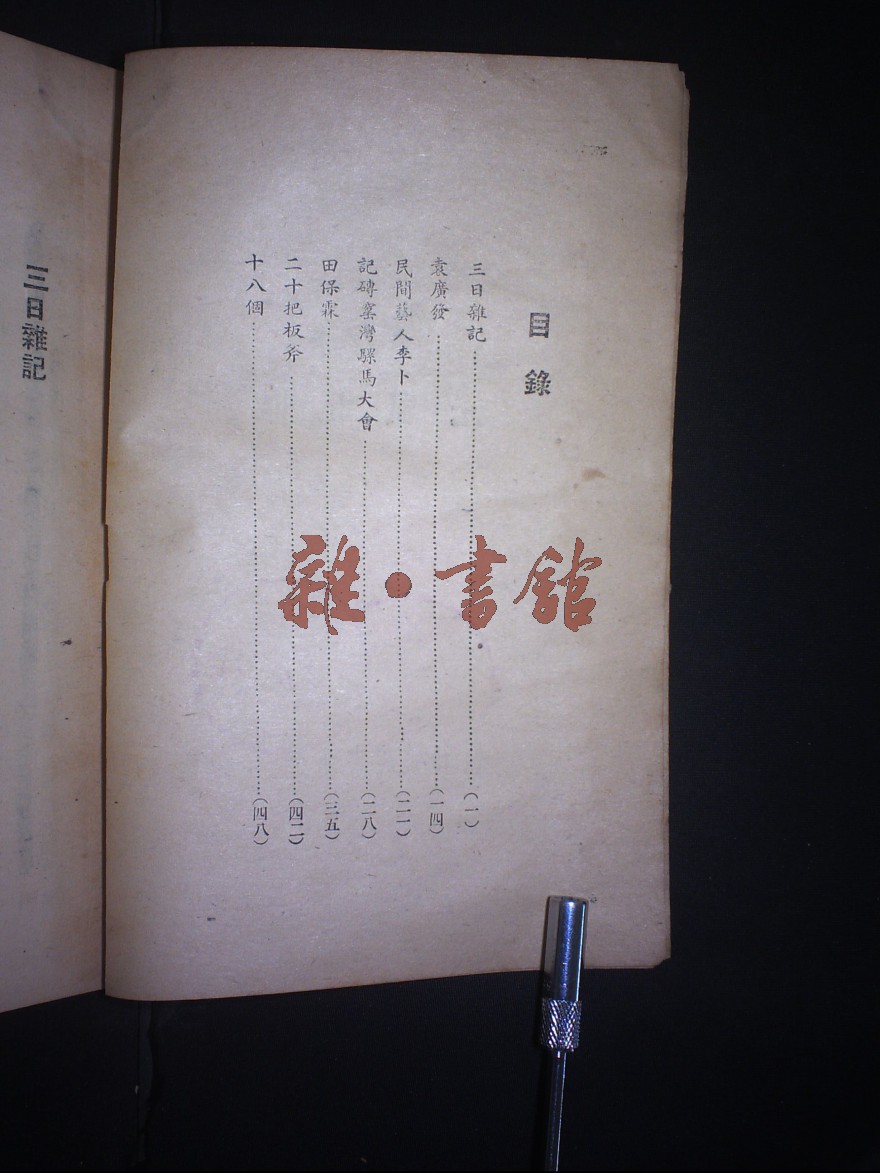 目錄
三日雜記……(一)
袁廣發……(一四)
民間藝人李卜……(二一)
記磚窰灣騾馬大會……(二八)
田保霖……(三五)
二十把板斧……(四二)
十八個……(四八)
三日雜記
雜·書館